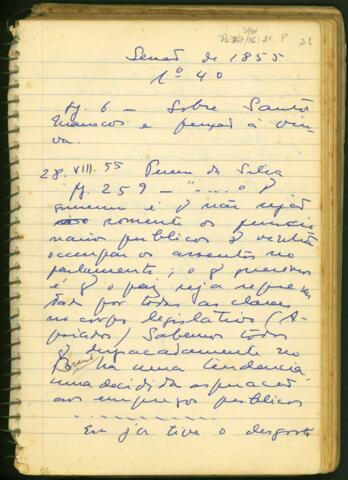 SBH
P 23
Senado de 1855
1º 40
pg. 6 — Sobre Santos
Marrocos e pensão à viu-
va.
28.VIII.55 Penna da Silva
pg. 259 - "..... o q
queremos é q não sejão
somente os funccio
narios publicos q venhão
occupar os assentos no
parlamento; o q queremos
é q o paiz seja represen
tado por todas as classes
no corpo legislativo (A-
poiados) Sabemos todos
q desgraçadamente no
Brasil ha uma tendencia
uma decidida aspiração
aos empregos publicos
Eu já tive o desgosto